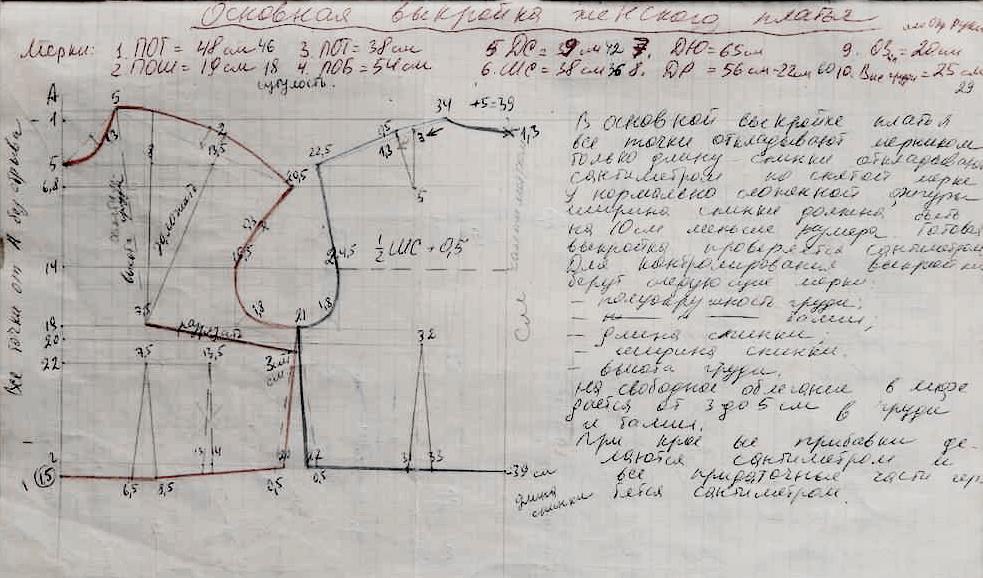 Основная выкройка женского платья
Мерки: 1. ПОГ = 48 см 46 3. ПОТ = 38 см 5. ДС = 39 см 42 7. ДЮ = 65 см 9. = 20 см
2. ПОШ = 19 см 18 4. ПОБ = 54 см 6. ШС = 38 см 36 8. ДР = 56 см - 22 см 60 10. Выс груди = 25 см
29
А
5
34 +5=39
1
1,3
13
2
13,5
3
5
22,5
6,8
5
19,5
1/2 ШС + 0,5
14
1,8
21
1,8
18
7,5
разрезать
20
22
7,5
13,5
3
см
32
2
15
13 14
33
39 см
6,5 8,5
0,5
0,5
длина
спинки
высота
груди
Все точки от А без отрыва
В основной выкройке платья
все точки откладывают мерником
только длину спинки откладывают
сантиметром по снятой мерке
У нормально сложенной фигуры
ширина спинки должна быть
на 10 см меньше размера. Готовая
выкройка проверяется сантиметром
Для контролирования выкройки
берут следующие мерки:
– полуокружность груди;
– талии;
– длина спинки
– ширина спинки.
– высота груди.
На свободное облегание в лифе
дается от 3 до 5 см в груди
и талии.
При крое все прибавки де-
лаются сантиметром и
все придаточные части
сантиметром.